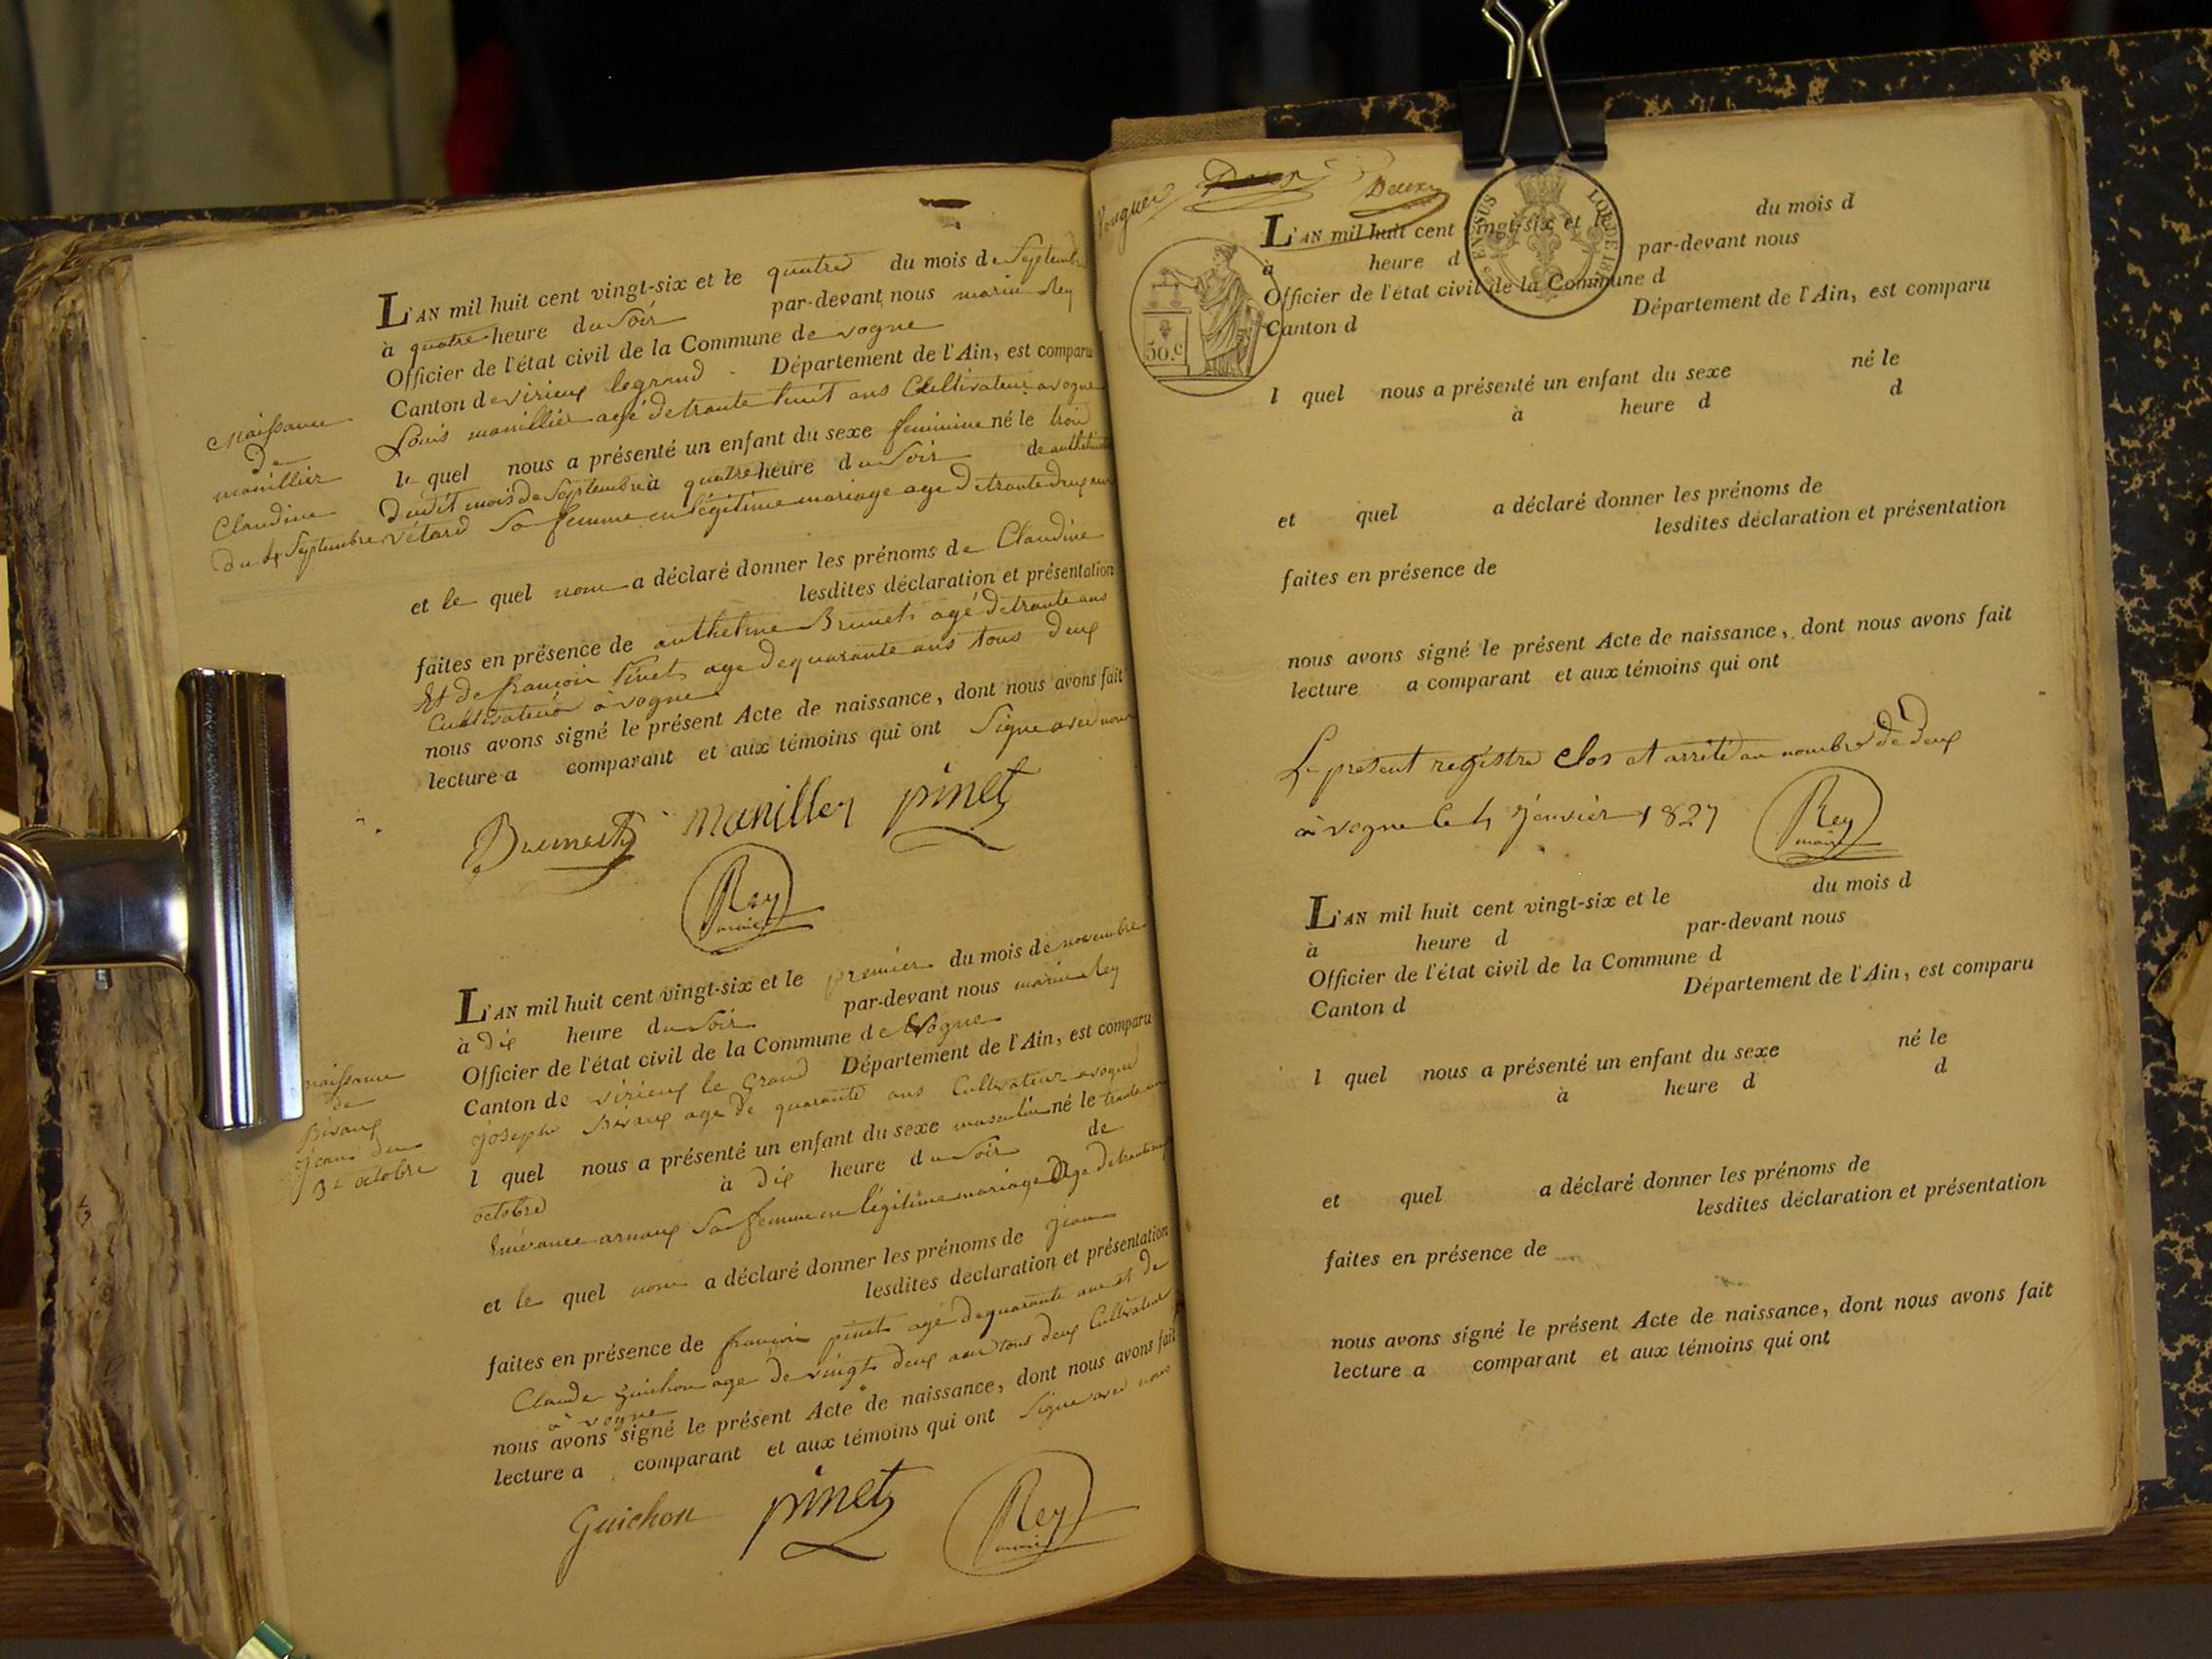 L'AN mil huit cent vingt-six et le quatre du mois de Septembre
à quatre heure du Soir par-devant nous maire Rey
Officier de l'état civil de la Commune de vogne
Canton de virieux legrand Département de l'Ain, est comparu
Louis manillier age de trante huit ans Cultivateur a vogne
le quel nous a présenté un enfant du sexe feminine né le trois
dudit mois de Septembre à quatre heure du Soir de anthelmette
vétard Sa femme en légitime mariage age de trante deux ans
et le quel nous a déclaré donner les prénoms de Claudine
lesdites déclaration et présentation
faites en présence de anthelme Brunet agé de trante ans
Et de françois Pinet age de quarante ans tous deux
Cultivateur à vogne
nous avons signé le présent Acte de naissance, dont nous avons fait
lecture a comparant et aux témoins qui ont Signe avec nous
Naissance
de
manillier
Claudine
du 4 Septembre
Brunet manillier pinet
Rey
maire
L'AN mil huit cent vingt-six et le premier du mois de novembre
à dix heure du Soir par-devant nous maire Rey
Officier de l'état civil de la Commune de Vogne
Canton de virieux le Grand Département de l'Ain, est comparu
joseph age de quarante ans Cultivateur a vogne
l quel nous a présenté un enfant du sexe masculin né le trante un
octobre à dix heure du Soir de
arnaux Sa femme en légitime mariage age de
et le quel nous a déclaré donner les prénoms de jean
lesdites déclaration et présentation
faites en présence de françois pinet agé de quarante ans et de
Claude Guichon age de vingt deux ans tous deux Cultivateur
à vogne
nous avons signé le présent Acte de naissance, dont nous avons fait
lecture a comparant et aux témoins qui ont Signe avec nous
naissance
de
jean du
31 octobre
Guichon pinet Rey
maire
Deux
50.c
L'AN mil huit cent vingt-six et le du mois d
à heure d par-devant nous
Officier de l'état civil de la Commune d
Canton d Département de l'Ain, est comparu
l quel nous a présenté un enfant du sexe né le
à heure d d
et quel a déclaré donner les prénoms de
lesdites déclaration et présentation
faites en présence de
nous avons signé le présent Acte de naissance, dont nous avons fait
lecture a comparant et aux témoins qui ont
Le present registre Clos et arrêté au nombre de deux
à vogne le 4 janvier 1827 Rey
maire
L'AN mil huit cent vingt-six et le du mois d
à heure d par-devant nous
Officier de l'état civil de la Commune d
Canton d Département de l'Ain, est comparu
l quel nous a présenté un enfant du sexe né le
à heure d d
et quel a déclaré donner les prénoms de
lesdites déclaration et présentation
faites en présence de
nous avons signé le présent Acte de naissance, dont nous avons fait
lecture a comparant et aux témoins qui ont